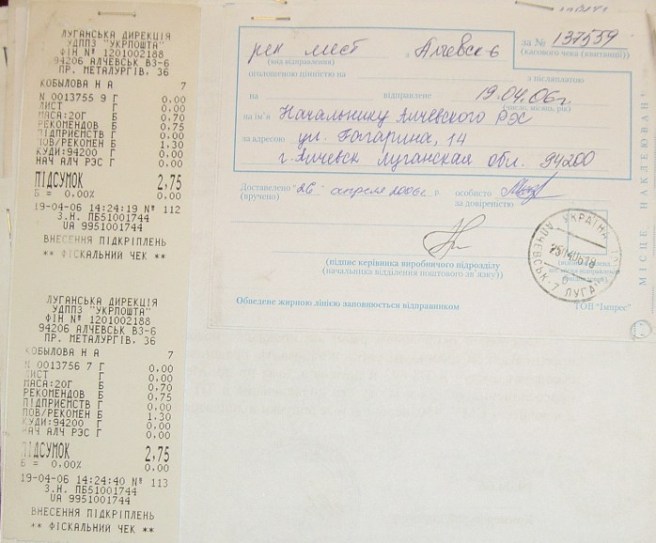 ЛУГАНСЬКА ДИРЕКЦІЯ
УДППЗ "УКРПОШТА"
ФІН № 1201002188
94206 АЛЧЕВСЬК ВЗ-6
ПР. МЕТАЛУРГІВ, 36
КОБЫЛОВА Н А 7
N 0013755 9 Г 0.00
ЛИСТ Г 0.00
МАСА:20Г Б 0.70
РЕКОМЕНДОВ Б 0.75
ПІДПРИЄМСТВ Г 0.00
ПОВ/РЕКОМЕН Б 1.30
КУДИ:94200 Г 0.00
НАЧ АЛЧ РЭС Г 0.00
ПІДСУМОК 2,75
Б = 0,00% 0.00
19-04-06 14:24:19 № 112
З.Н. ПБ51001744
UA 9951001744
ВНЕСЕННЯ ПІДКРІПЛЕНЬ
** ФІСКАЛЬНИЙ ЧЕК **
ЛУГАНСЬКА ДИРЕКЦІЯ
УДППЗ "УКРПОШТА"
ФІН № 1201002188
94206 АЛЧЕВСЬК ВЗ-6
ПР. МЕТАЛУРГІВ, 36
КОБЫЛОВА Н А 7
N 0013756 7 Г 0.00
ЛИСТ Г 0.00
МАСА:20Г Б 0.70
РЕКОМЕНДОВ Б 0.75
ПІДПРИЄМСТВ Г 0.00
ПОВ/РЕКОМЕН Б 1.30
КУДИ:94200 Г 0.00
НАЧ АЛЧ РЭС Г 0.00
ПІДСУМОК 2,75
Б = 0,00% 0.00
19-04-06 14:24:40 № 113
З.Н. ПБ51001744
UA 9951001744
ВНЕСЕННЯ ПІДКРІПЛЕНЬ
** ФІСКАЛЬНИЙ ЧЕК **
рек мест Алчевск-6 за № 137559
(вид відправлення) (касового чека (квитанції))
оголошеною цінністю на з післяплатою
на відправлене 19.04.06г
(число, місяць, рік)
на ім'я Начальнику Алчевского РЭС
за адресою ул. Гагарина, 14
г. Алчевск Луганская обл. 94200
Доставлено "26" апреля 2006г. особисто
(вручено) за довіреністю
(підпис керівника виробничого підрозділу
(начальника відділення поштового зв'язку))
Обведене жирною лінією заповнюється відправником
ТОВ "Імпрес"
УКРАЇНА
АЛЧЕВСЬК-7 ЛУГАН
МІСЦЕ НАКЛЕЮВАН